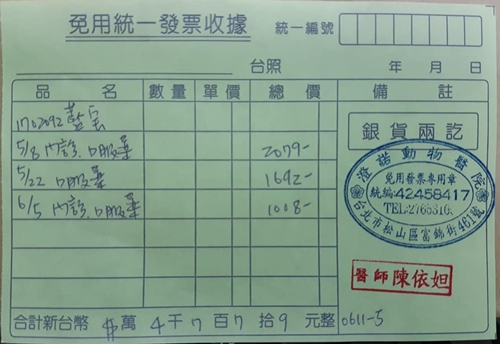 免用統一發票收據 統一編號
台照 年 月 日
品名 數量 單價 總價 備註
1702092 藍雲
5/8 內診、口服藥 2079-
銀貨兩訖
5/22 口服藥 1692-
6/5 內診、口服藥 1008-
澄諾動物醫院
免用發票專用章
統編:42458417
TEL:2765310
台北市松山區富錦街461號
醫師陳依妲
合計新台幣 萬 4 千 7 百 7 拾 9 元整 0611-5